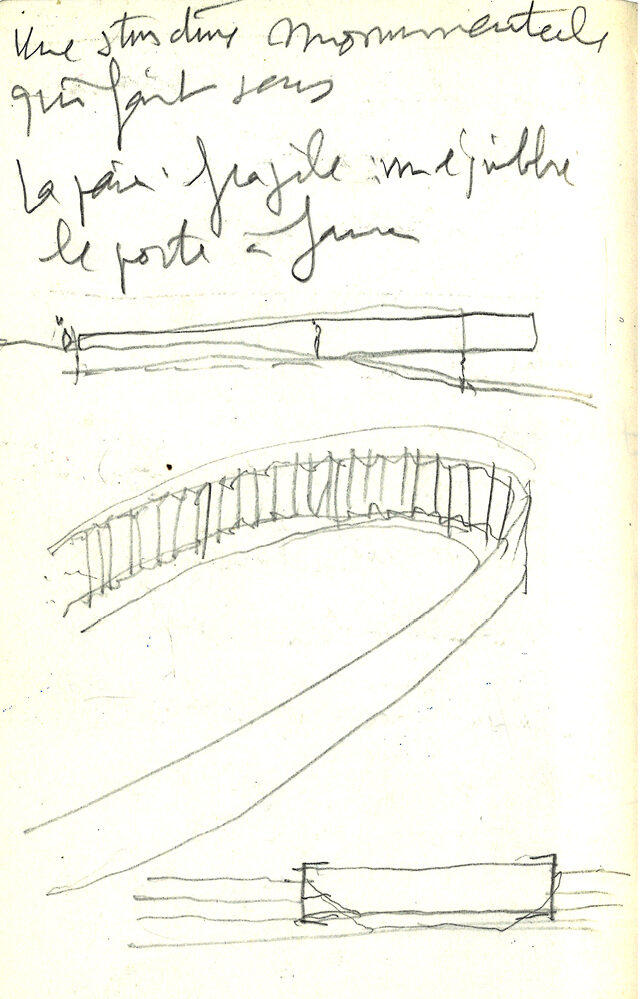 Une structure monumentale
qui fait sens
La paix : fragile : un équilibre
le porte à faux